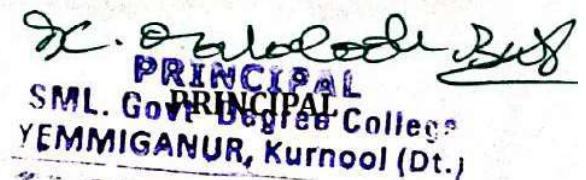 PRINCIPAL
PRINCIPAL
SML. Govt Degree College
YEMMIGANUR, Kurnool (Dt.)